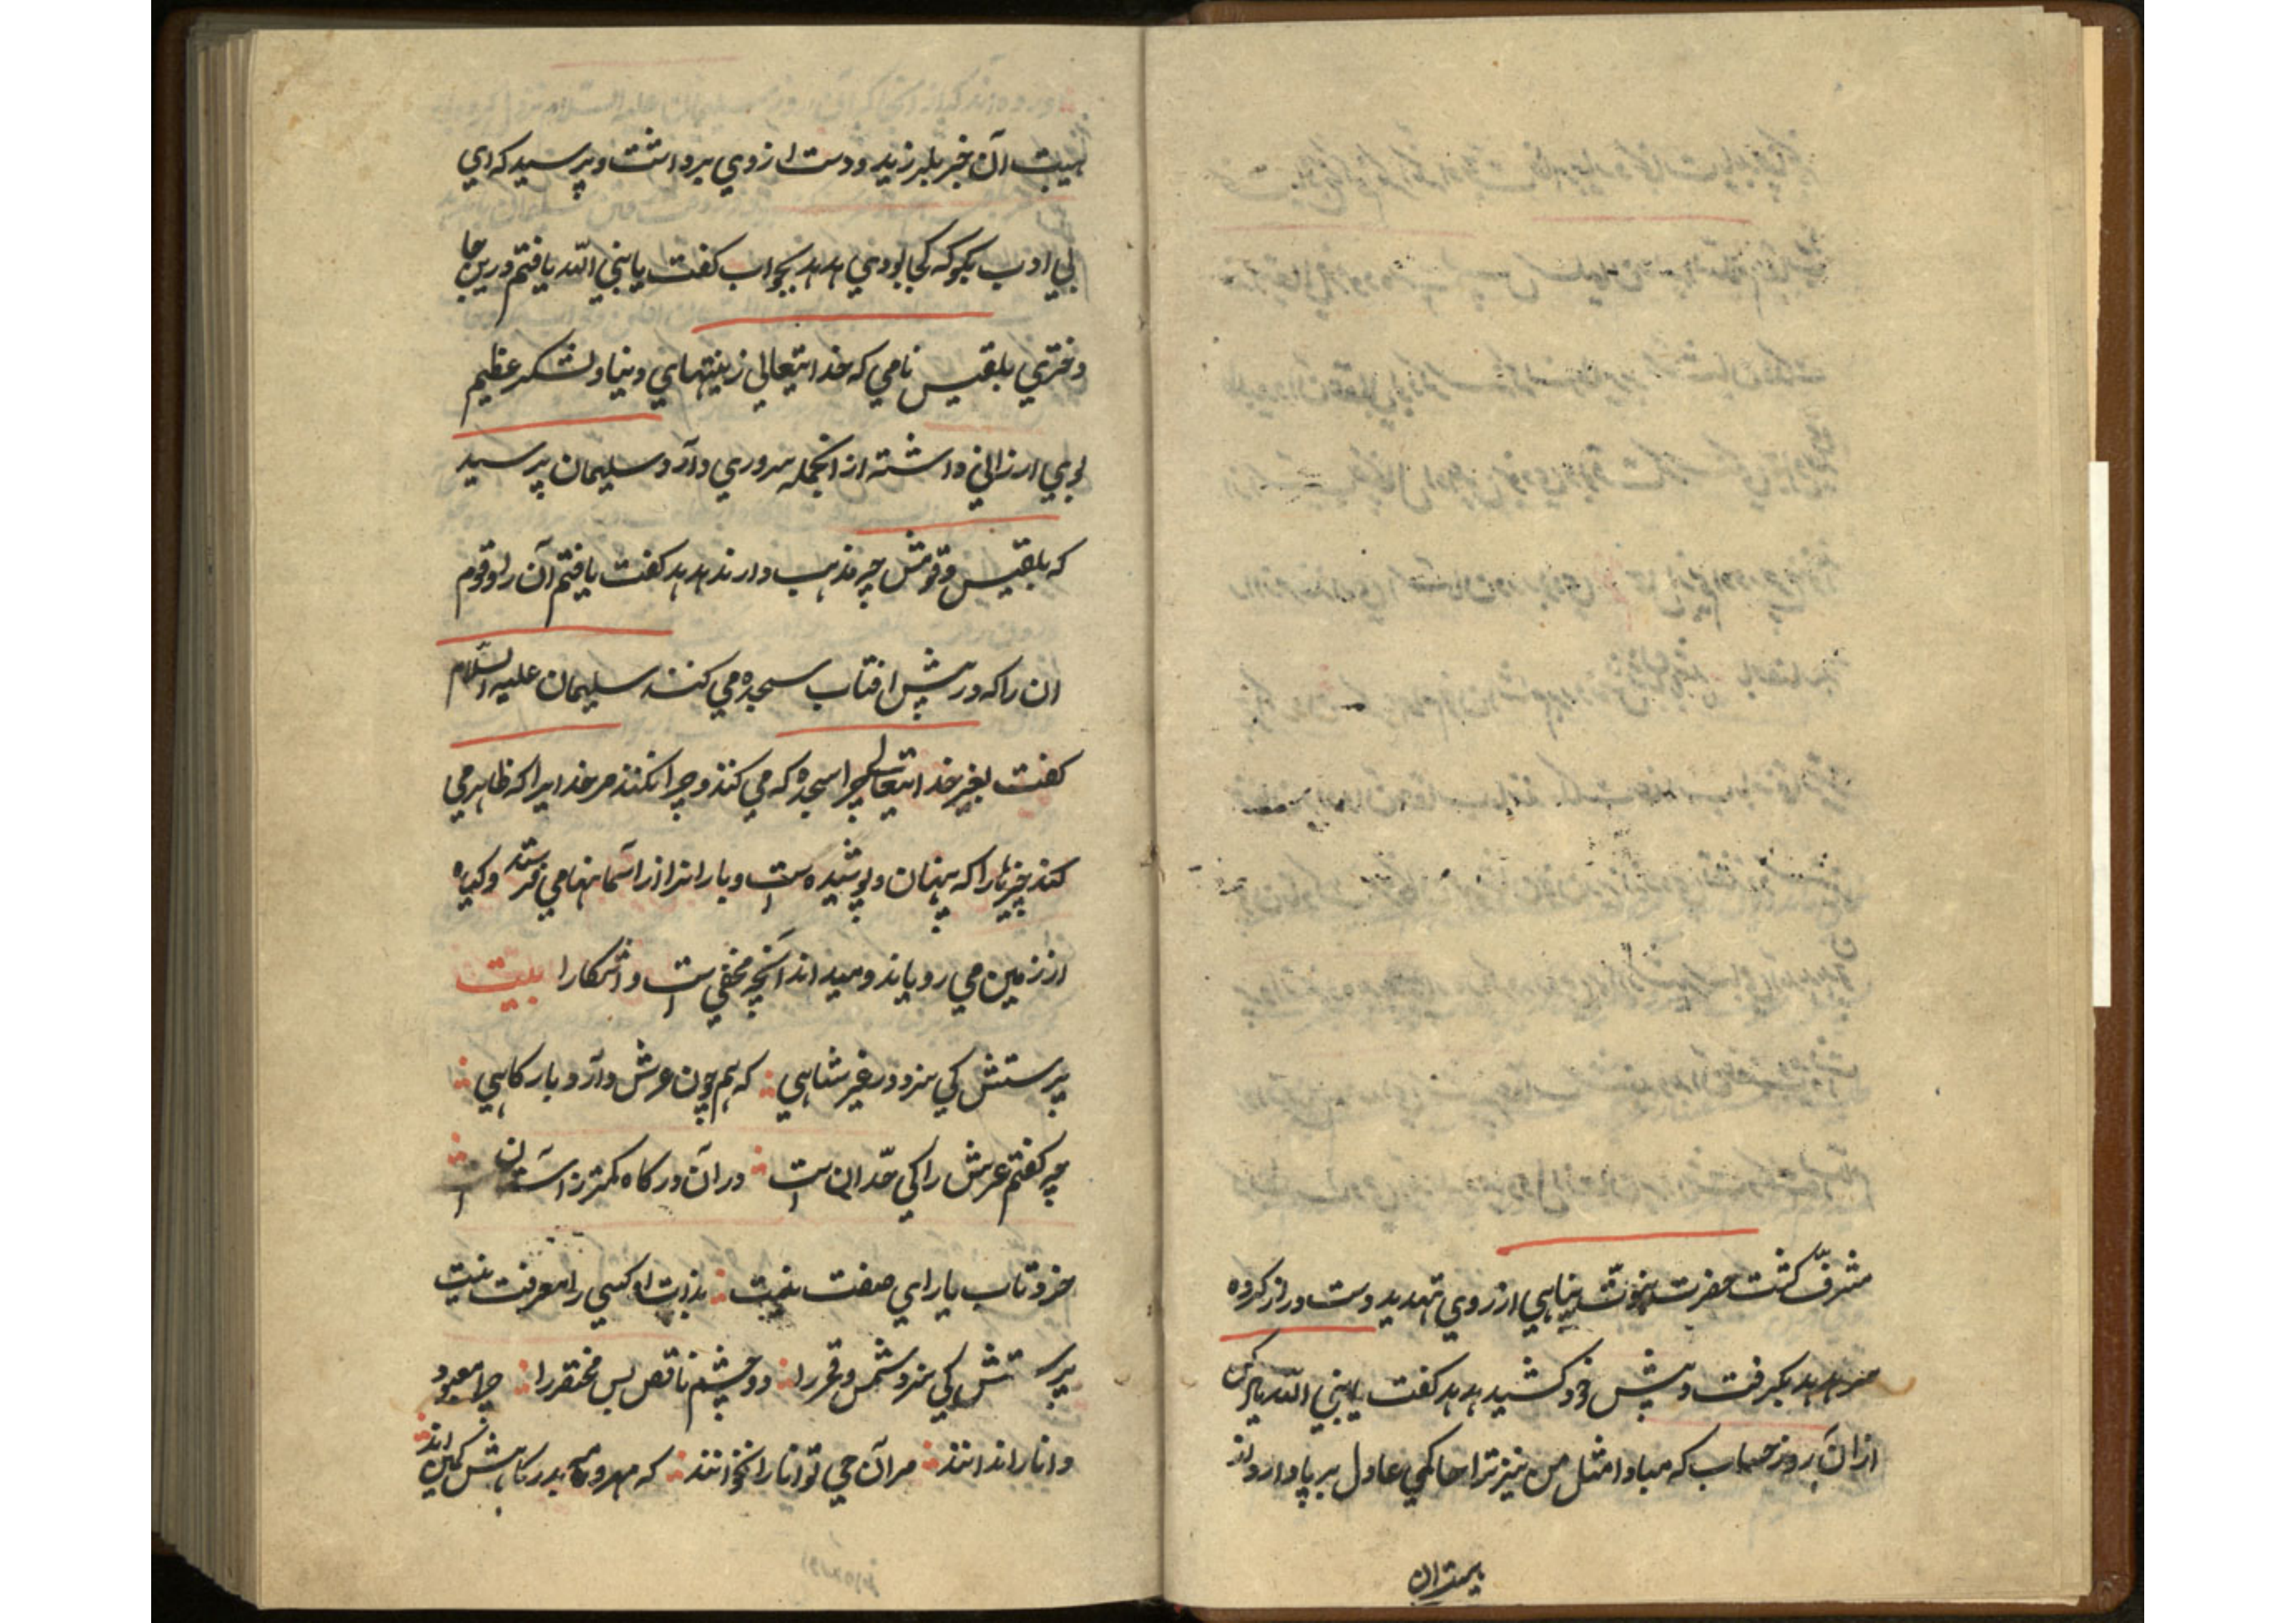 مشرف گشت حضرت نبوت پناهی از روی تهدید دست دراز کرده
سر هدهد بگرفت و پیش خود کشید هدهد گفت یا نبی الله یاد کن
از ان روز حساب که مبادا مثل من نیز ترا حاکمی عادل بر پا دارد و از
هیبت ان
هیبت آن خبر بلرزید و دست از وی برداشت و پرسید که ای
بی ادب بگو که کجا بودی هدهد بجواب گفت یا نبی الله یافتم درین جا
دختری بلقیس نامی که خدایتعالی زینتهای دنیا و لشکر عظیم
بوی ارزانی داشته از انجمله سروری دارد سلیمان پرسید
که بلقیس و قومش چه مذهب دارند هدهد گفت یافتم آن را و قوم
ان را که در پیش افتاب سجده می کنند سلیمان علیه السلام
گفت بغیر خدایتعالی چرا سجده که می کنند و چرا نکنند مر خدایرا که ظاهر می
کند چیزها را که پنهان و پوشیده است و بارانرا از آسمانها می فرستد و گیاه
از زمین می رویاند و میداند آنچه مخفی است و اشکارا بیت
پرستش کی سزد در غیر شاهی که هم چون عرش دارد بارگاهی
چه گفتم عرش را کی حد ان است در آن درگاه کمتر ز آستان است
خرد تاب یارای صفت نیست بذات او کسی را معرفت نیست
پرستش کی سزد شمس و قمر را دو چشم ناقص بس مختصر را چرا معبود
دانا را ندانند مر آن حی توانا را نخوانند که مهر و مه بدرگاهش کمین اند